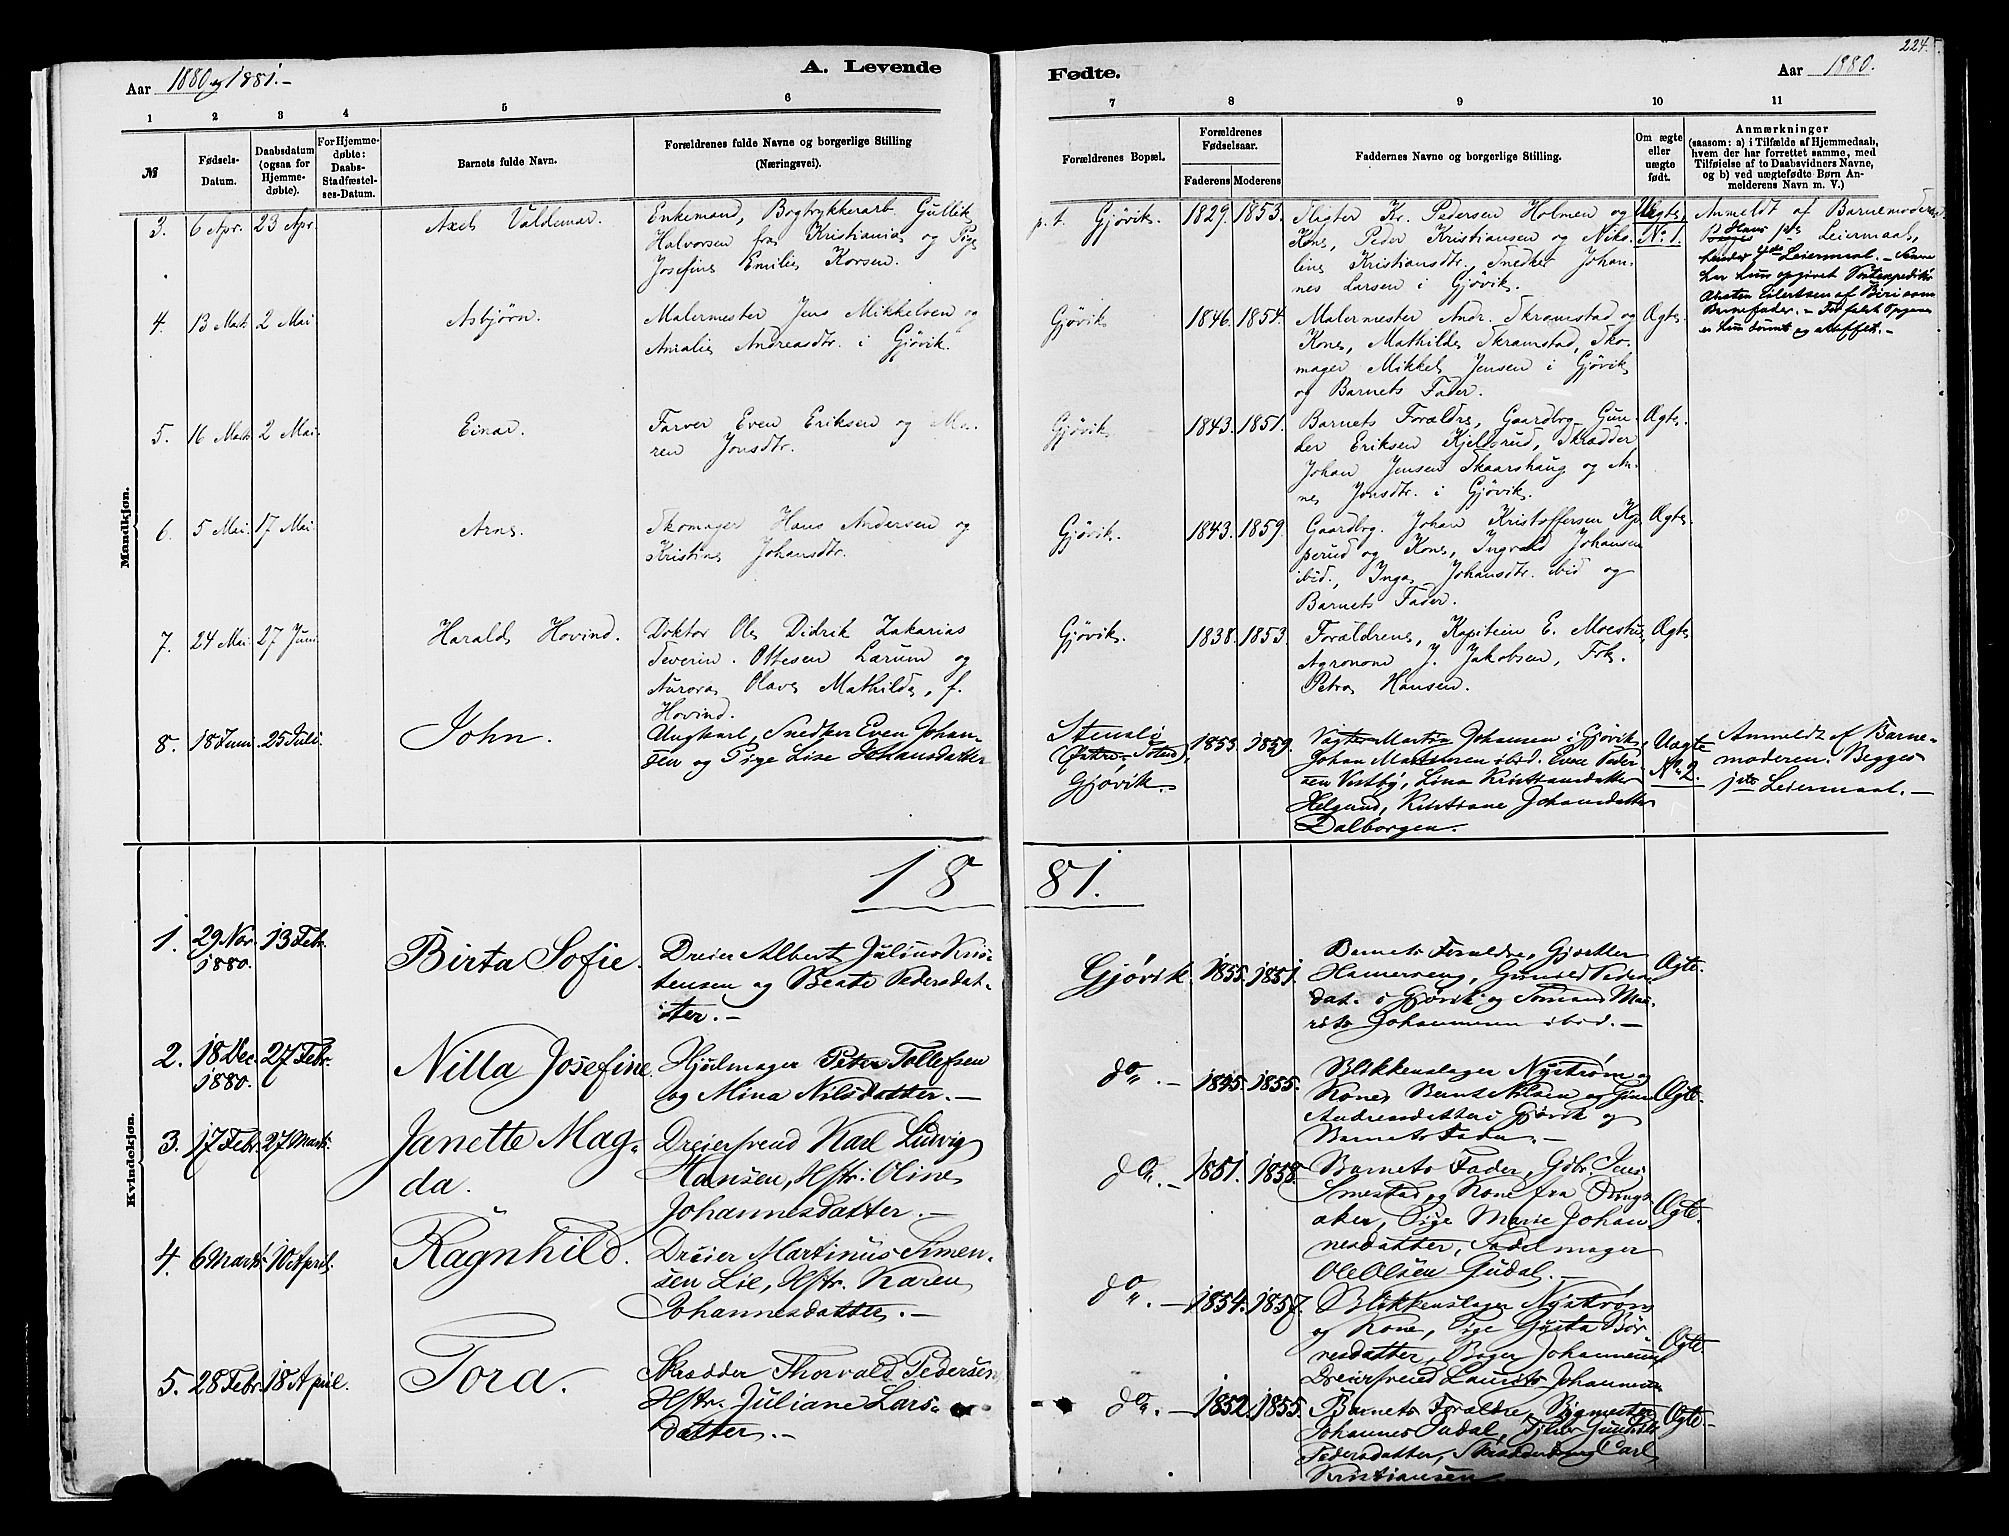 224.
Aar 1880 og 1881.-
A. Levende
Fødte.
Aar 1880.
1 2 3 4 5 6 7 8 9 10 11
№
Fødsels-
Datum.
Daabsdatum
(ogsaa for
Hjemme-
døbte).
For Hjemme-
døbte:
Daabs-
Stadfæstel-
ses-Datum.
Barnets fulde Navn.
Forældrenes fulde Navne og borgerlige Stilling
(Næringsvei).
Forældrenes Bopæl.
Forældrenes
Fødselsaar.
Faderens Moderens
Faddernes Navne og borgerlige Stilling.
Om ægte
eller
uægte
født.
Anmærkninger
(saasom: a) i Tilfælde af Hjemmedaab,
hvem der har forrettet samme, med
Tilføielse af to Daabsvidners Navne,
og b) ved uægtefødte Børn An-
melderens Navn m. V.)
Mandkjøn.
3. 6 Apr. 23 Apr.
Axel Valdemar.
Enkemand, Bogtrykkerarb. Gullik
Halvorsen fra Kristiania og Pige
Josefine Emilie Korsen.
p. t. Gjøvik. 1829. 1853.
Kr. Pedersen Holmen og
Kone, Peder Kristiansen og Niko-
line Kristiansdtr., Snedker Johan-
nes Larsen i Gjøvik.
Uægte,
No 1.
Anmeldt af Barnemoderen
Hans Leiermaal,
hendes Leiermaal. -
har hun opgivet
Eilertsen af Biri som
Barnefader. - For falsk Opgave
er hun dømt og straffet. -
4. 13 Mark 2 Mai
Asbjørn.
Malermester Jens Mikkelsen og
Amalie Andreasdtr. i Gjøvik.
Gjøvik 1846. 1854.
Malermester Andr. Skramstad og
Kone, Mathilde Skramstad, Sko-
mager Mikkel Jensen i Gjøvik
og Barnets Fader.
Ægte.
5. 16 Mark 2 Mai.
Einar.
Farver Even Eriksen og Ma-
ren Jonsdtr.
Gjøvik 1843. 1851.
Barnets Forældre, Gaardbr. Gun-
der Eriksen Kjelsrud, Skrædder
Johan Jensen Skaarshaug og An-
ne Jonsdtr. i Gjøvik.
Ægte.
6. 5 Mai. 17 Mai.
Arne.
Skomager Hans Andersen og
Kristine Johansdtr.
Gjøvik. 1843. 1859.
Gaardbrg. Johan Kristoffersen Kop-
perud og Kone, Ingvald Johansen
ibid., Inga Johansdtr. ibid og
Barnets Fader.
Ægte.
7. 24 Mai. 27 Juni.
Harald Hovind.
Doktor Ole Didrik Zakarias
Severin Ottesen Lærum og
Aurora Olava Mathilde, f.
Hovind.
Gjøvik. 1838. 1853.
Forældrene, Kapitein E. Moestue,
Agronom J. Jakobsen, Frk.
Petra Hansen.
Ægte
8. 18 Juni. 25 Juli.
John.
Ungkarl, Snedker Even Johan-
sen og Pige Lise Johansdatter
Stenslø
(Østre-Toten),
Gjøvik.
1853. 1859.
Vægter Martin Johansen i Gjøvik,
Johan Martinsen ibid. Even Peder-
sen Vestby, Lina Kristiansdatter
Helgerud, Kristiane Johansdatter
Dalborgen.
Uægte
No 2.
Anmeldt af Barne-
moderen. Begges
1ste Leiermaal. -
1881.
Kvindekjøn.
1. 29 Nov. 1880. 13 Febr.
Birta Sofie.
Dreier Albert Julius Kris-
tensen og Beate Pedersdat-
ter. -
Gjøvik. 1855. 1851.
Barnets Forældre, Gjørtler
Hamereng, Gunild Peders-
dat. i Gjøvik og Sømand Mau-
ritz Johannesen ibid. -
Ægte.
2. 18 Dec. 1880. 27 Febr.
Nilla Josefine.
Hjulmager Peter Tollefsen
og Mina Nilsdatter. -
do. - 1845. 1855.
Blikkenslager Nystrøm og
Kone, Bernt Nilsen og
Andreasdatter i Gjøvik og
Barnets Fader. -
Ægte.
3. 17 Febr. 27 Marts.
Janette Mag-
da.
Dreiersvend Karl Ludvig
Hansen, Hstr. Oline
Johannesdatter. -
do. - 1851. 1858.
Barnets Fader, Gbr. Jens
Smestad og Kone fra Rings-
aker, Pige Marie Johan-
nesdatter, Sadelmager
Ole Olsen Gudal. -
Ægte.
4. 6 Marts 10 April.
Ragnhild.
Dreier Martinus Simen-
sen Lie, Hstr. Karen
Johannesdatter. -
do. - 1854. 1857.
Blikkenslager Nystrøm
og Kone, Pige Gusta Bør-
resdatter, Bager Johannesen,
Dreiersvend Laurits Johannesen
Ægte.
5. 28 Febr. 18 April.
Tora.
Skrædder Thorvald Pedersen,
Hstr. Juliane Lars-
datter. -
do. - 1852. 1855.
Barnets Forældre,
Johannes
Pedersdatter, Carl
Kristiansen
Ægte-